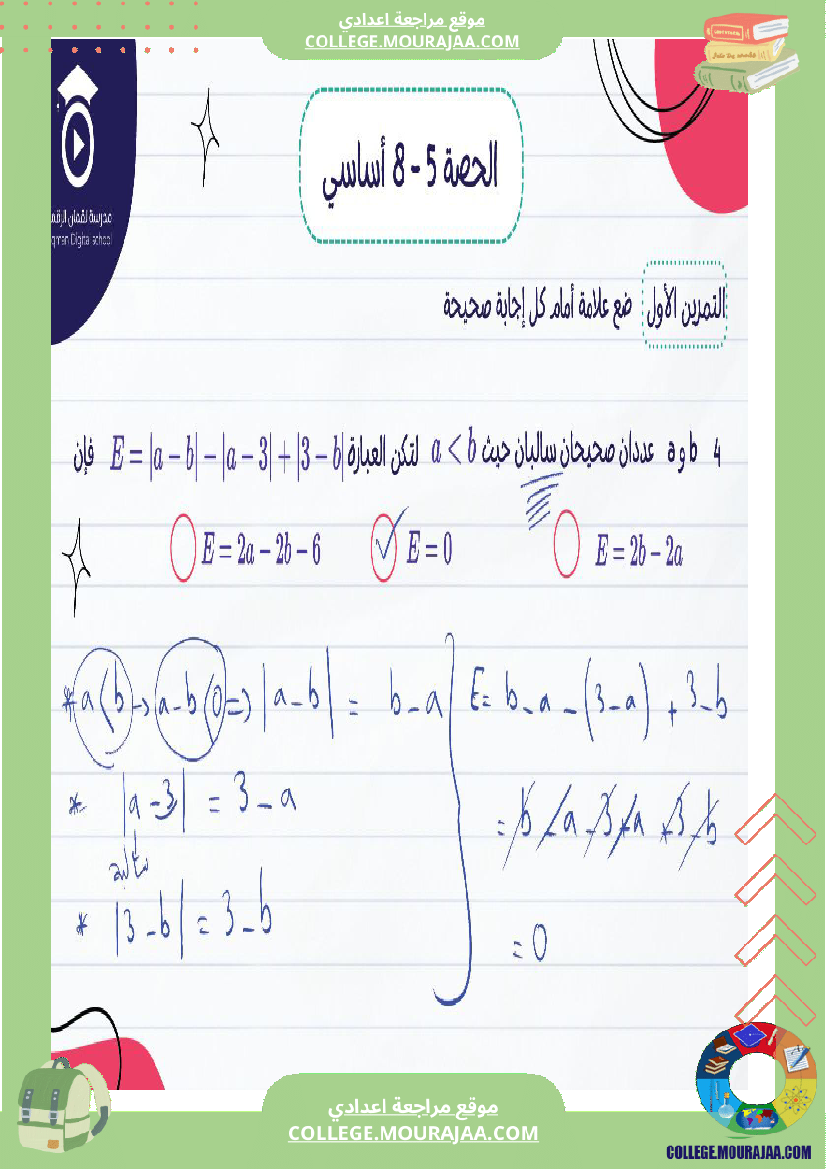 موقع مراجعة اعدادي
COLLEGE.MOURAJAA.COM
مدرسة لقمان الرقم
qman Digital school
الحصة 5 - 8 أساسي
التمرين الأول ضع علامة أمام كل إجابة صحيحة
4 a و b عددان صحيحان سالبان حيث a < b لتكن العبارة E = |a − b| − |a − 3| + |3 − b| فإن
E = 2b − 2a
E = 0
E = 2a − 2b − 6
* a < b → a - b < 0 => |a - b| = b - a
* |a - 3| = 3 - a
سالبة
* |3 - b| = 3 - b
E = b - a - (3 - a) + 3 - b
= b - a - 3 + a + 3 - b
= 0
موقع مراجعة اعدادي
COLLEGE.MOURAJAA.COM
COLLEGE.MOURAJAA.COM